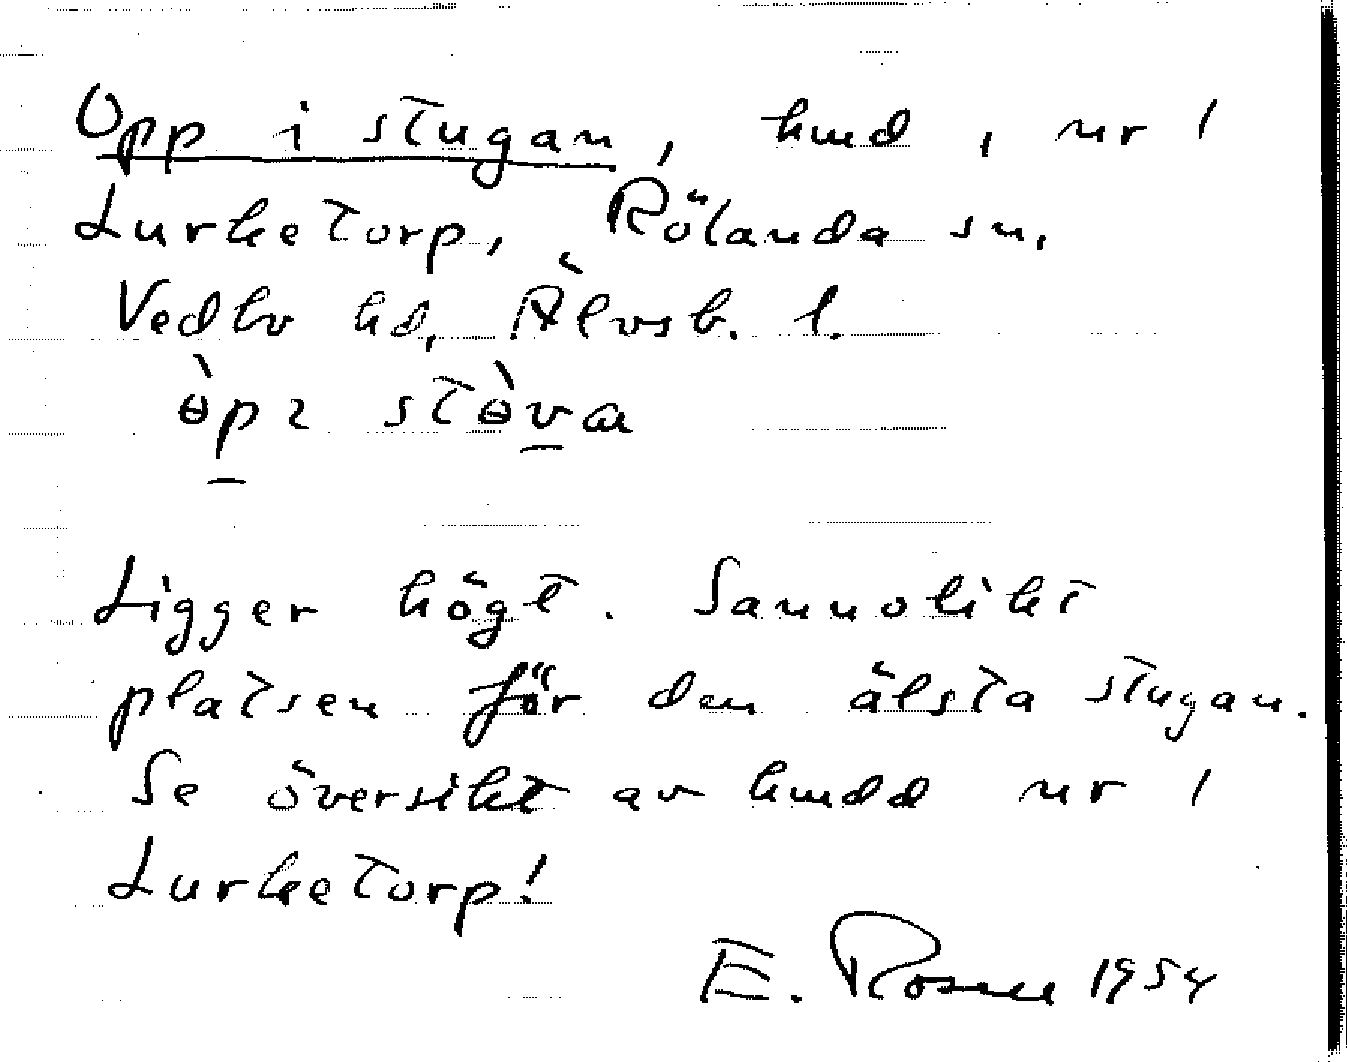 Opp i stugan, hmd, nr 1
Lurketorp, Rölanda sn,
Vedbo hd, Älvsb. l.
ɵ̀pɩ stɵ̀va
Ligger högt. Sannolikt
platsen för den älsta stugan.
Se översikt av hmdd nr 1
Lurketorp!
E. Rosell 1954